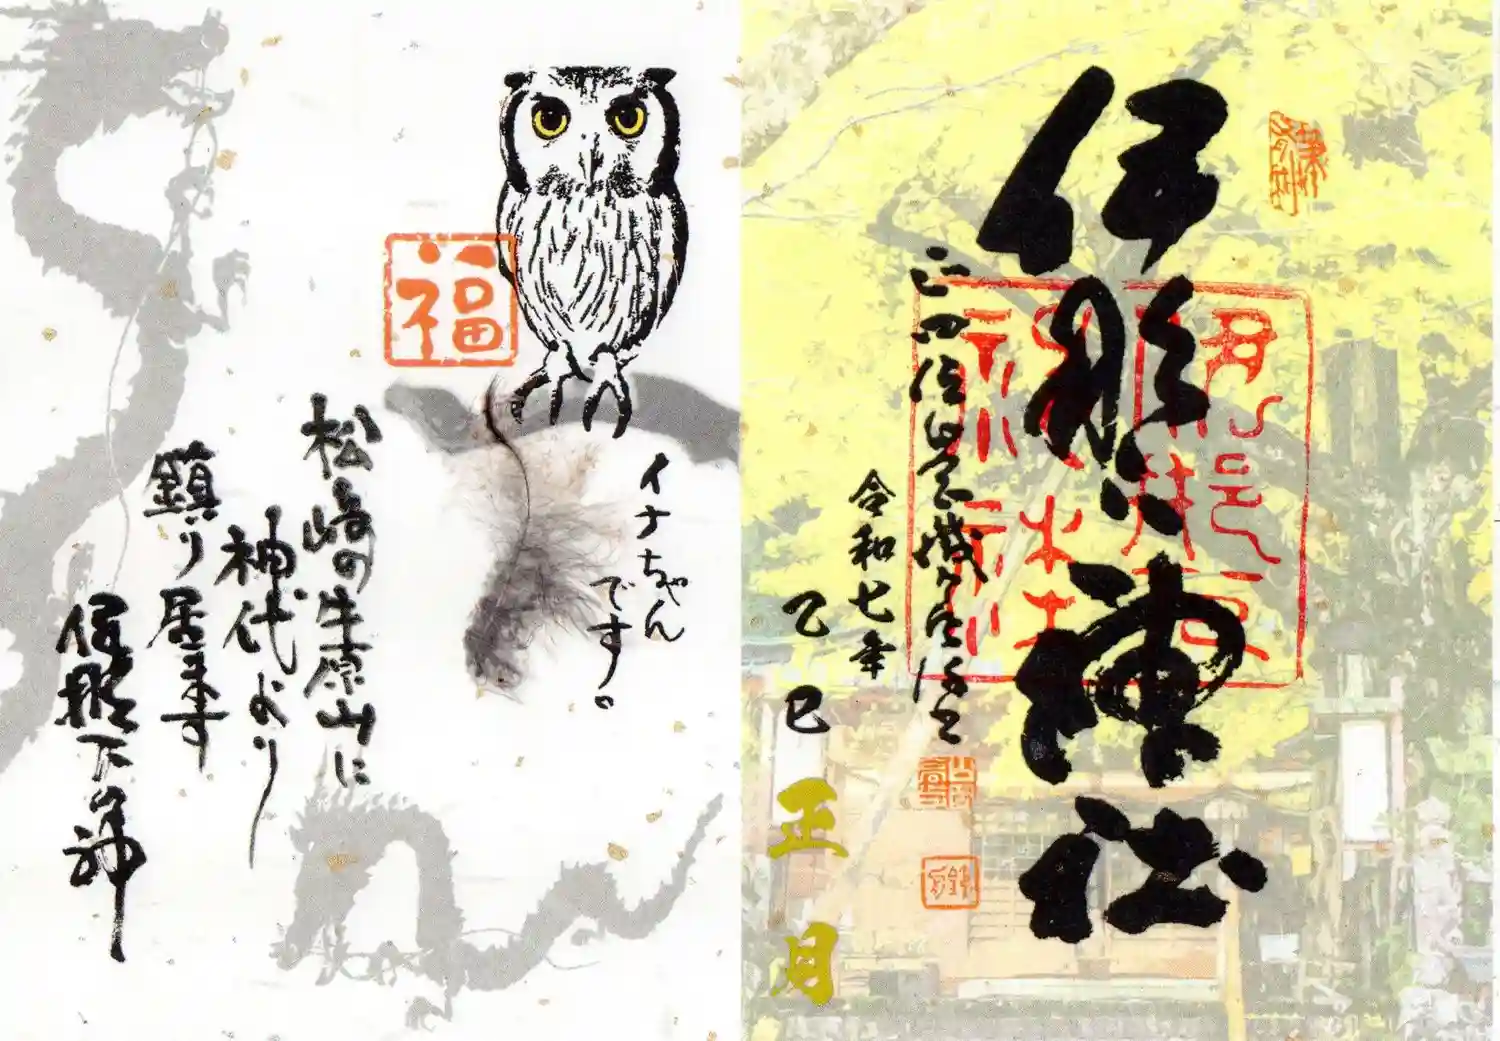 伊那下神社
正四位
令和七年
乙巳
正月
福
イナちゃん
です。
松崎の牛原山に
神代より
鎮り居ます
伊那下の神